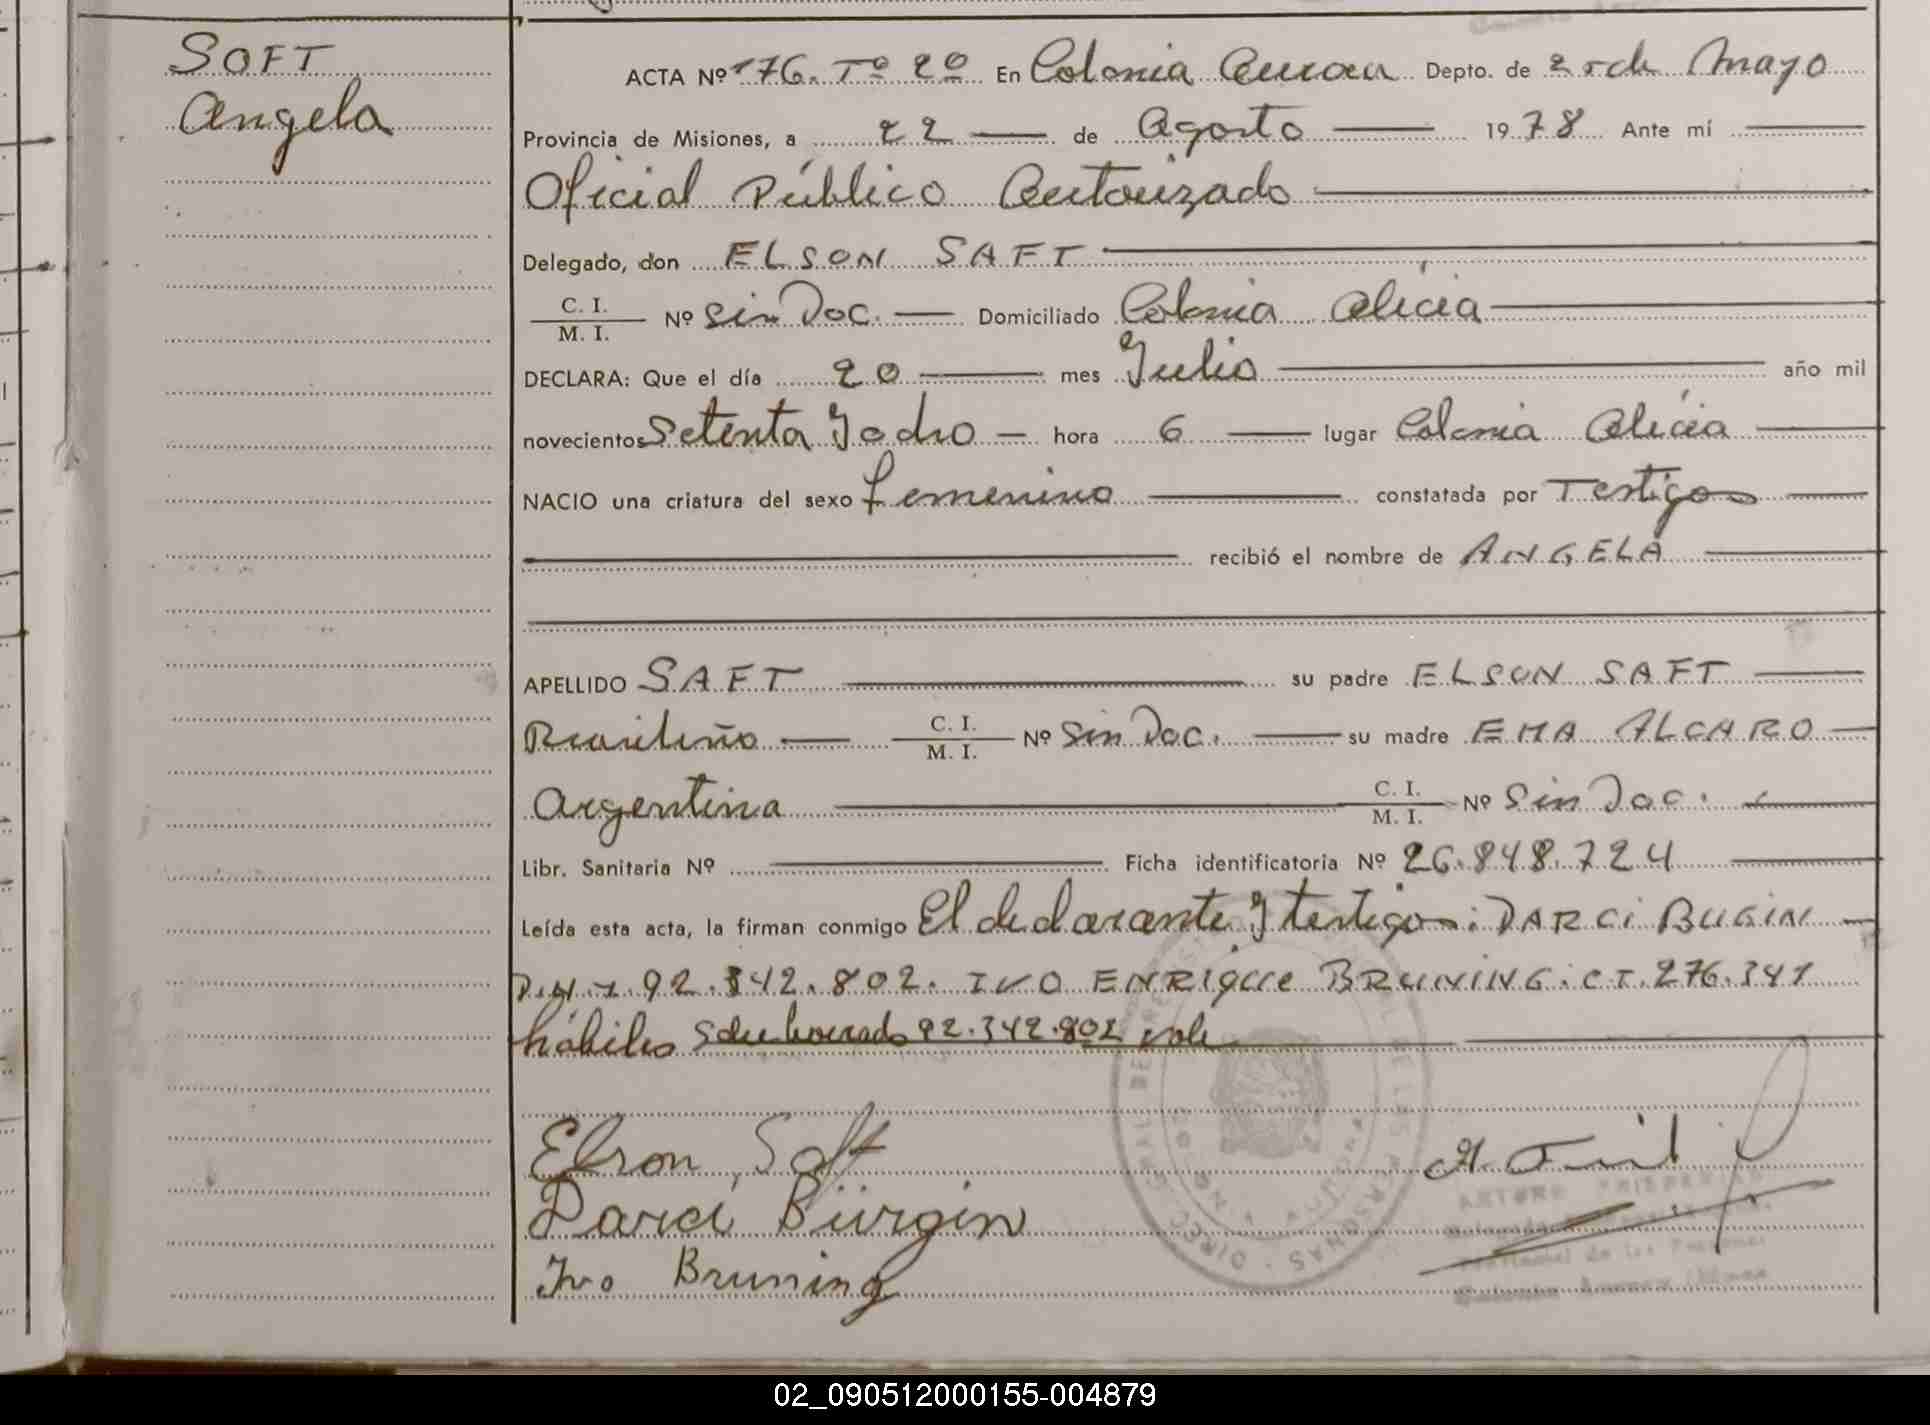 SOFT
Angela
ACTA Nº 176. Tº 2º En Colonia Aurora Depto. de 25 de Mayo
Provincia de Misiones, a 22 de Agosto 1978 Ante mí
Oficial Público Autorizado
Delegado, don ELSON SAFT
C. I. / M. I. Nº Sin Doc. Domiciliado Colonia Alicia
DECLARA: Que el día 20 mes Julio año mil
novecientos Setenta y ocho hora 6 lugar Colonia Alicia
NACIO una criatura del sexo femenino constatada por Testigos
recibió el nombre de ANGELA
APELLIDO SAFT su padre ELSON SAFT
Brasileño C. I. / M. I. Nº Sin Doc. su madre EMA ALCARO
Argentina C. I. / M. I. Nº Sin Doc.
Libr. Sanitaria Nº Ficha identificatoria Nº 26.848.724
Leída esta acta, la firman conmigo El declarante y testigos: DARCI BUGIN
D.N.I 92.342.802. IVO ENRIQUE BRUNING. C.I. 276.341
hábiles Sobreborrado 92.342.802 vale
Elson Saft
Darci Bürgin
Ivo Bruning
DIREC. GRAL. DE REGISTRO DE LAS PERSONAS
02_090512000155-004879